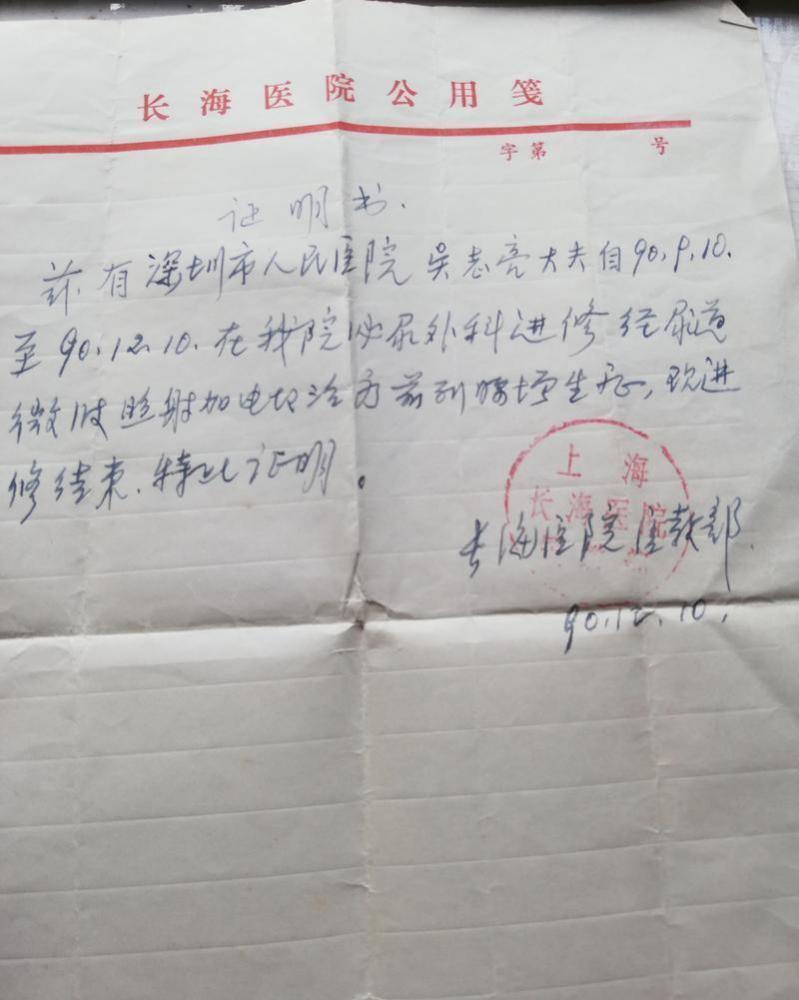 长海医院公用笺
字第 号
证明书.
兹有深圳市人民医院吴志亮大夫自90.9.10.
至90.12.10.在我院泌尿外科进修经尿道
微波照射加电切治疗前列腺增生症,现进
修结束.特此证明。
上海
长海医院
长海医院医教部.
90.12.10.